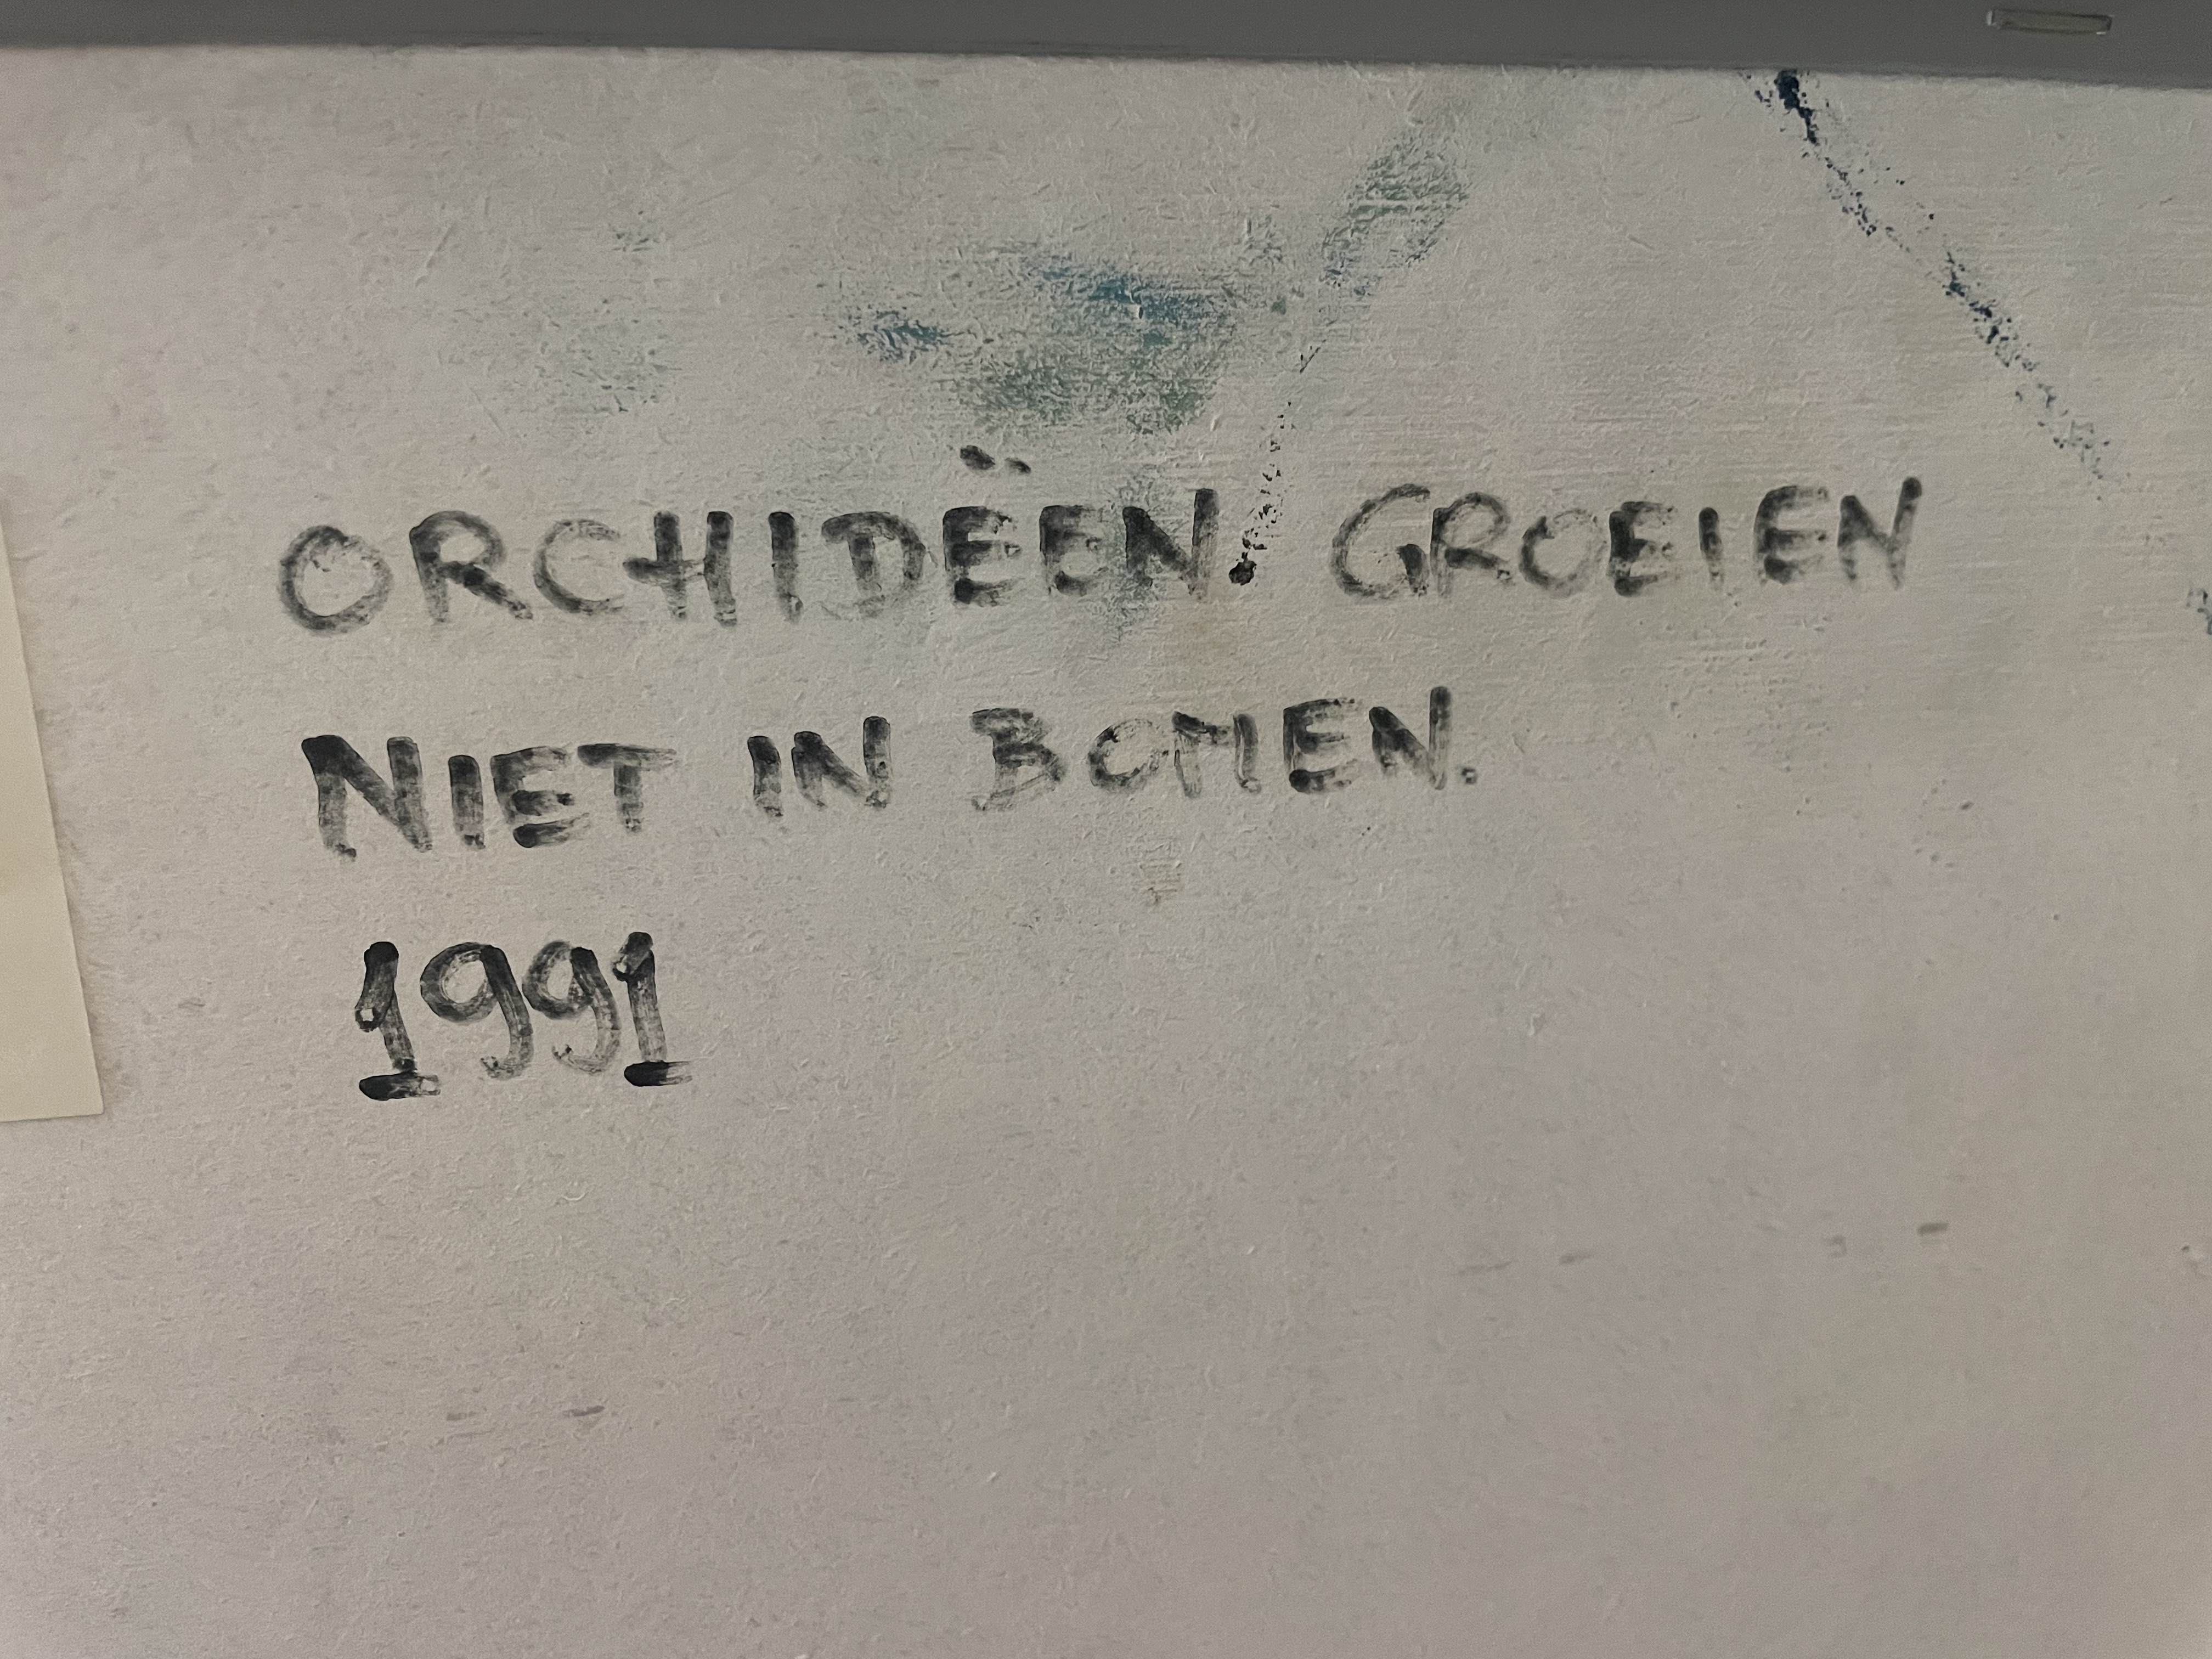 ORCHIDEËN GROEIEN
NIET IN BOMEN.
1991